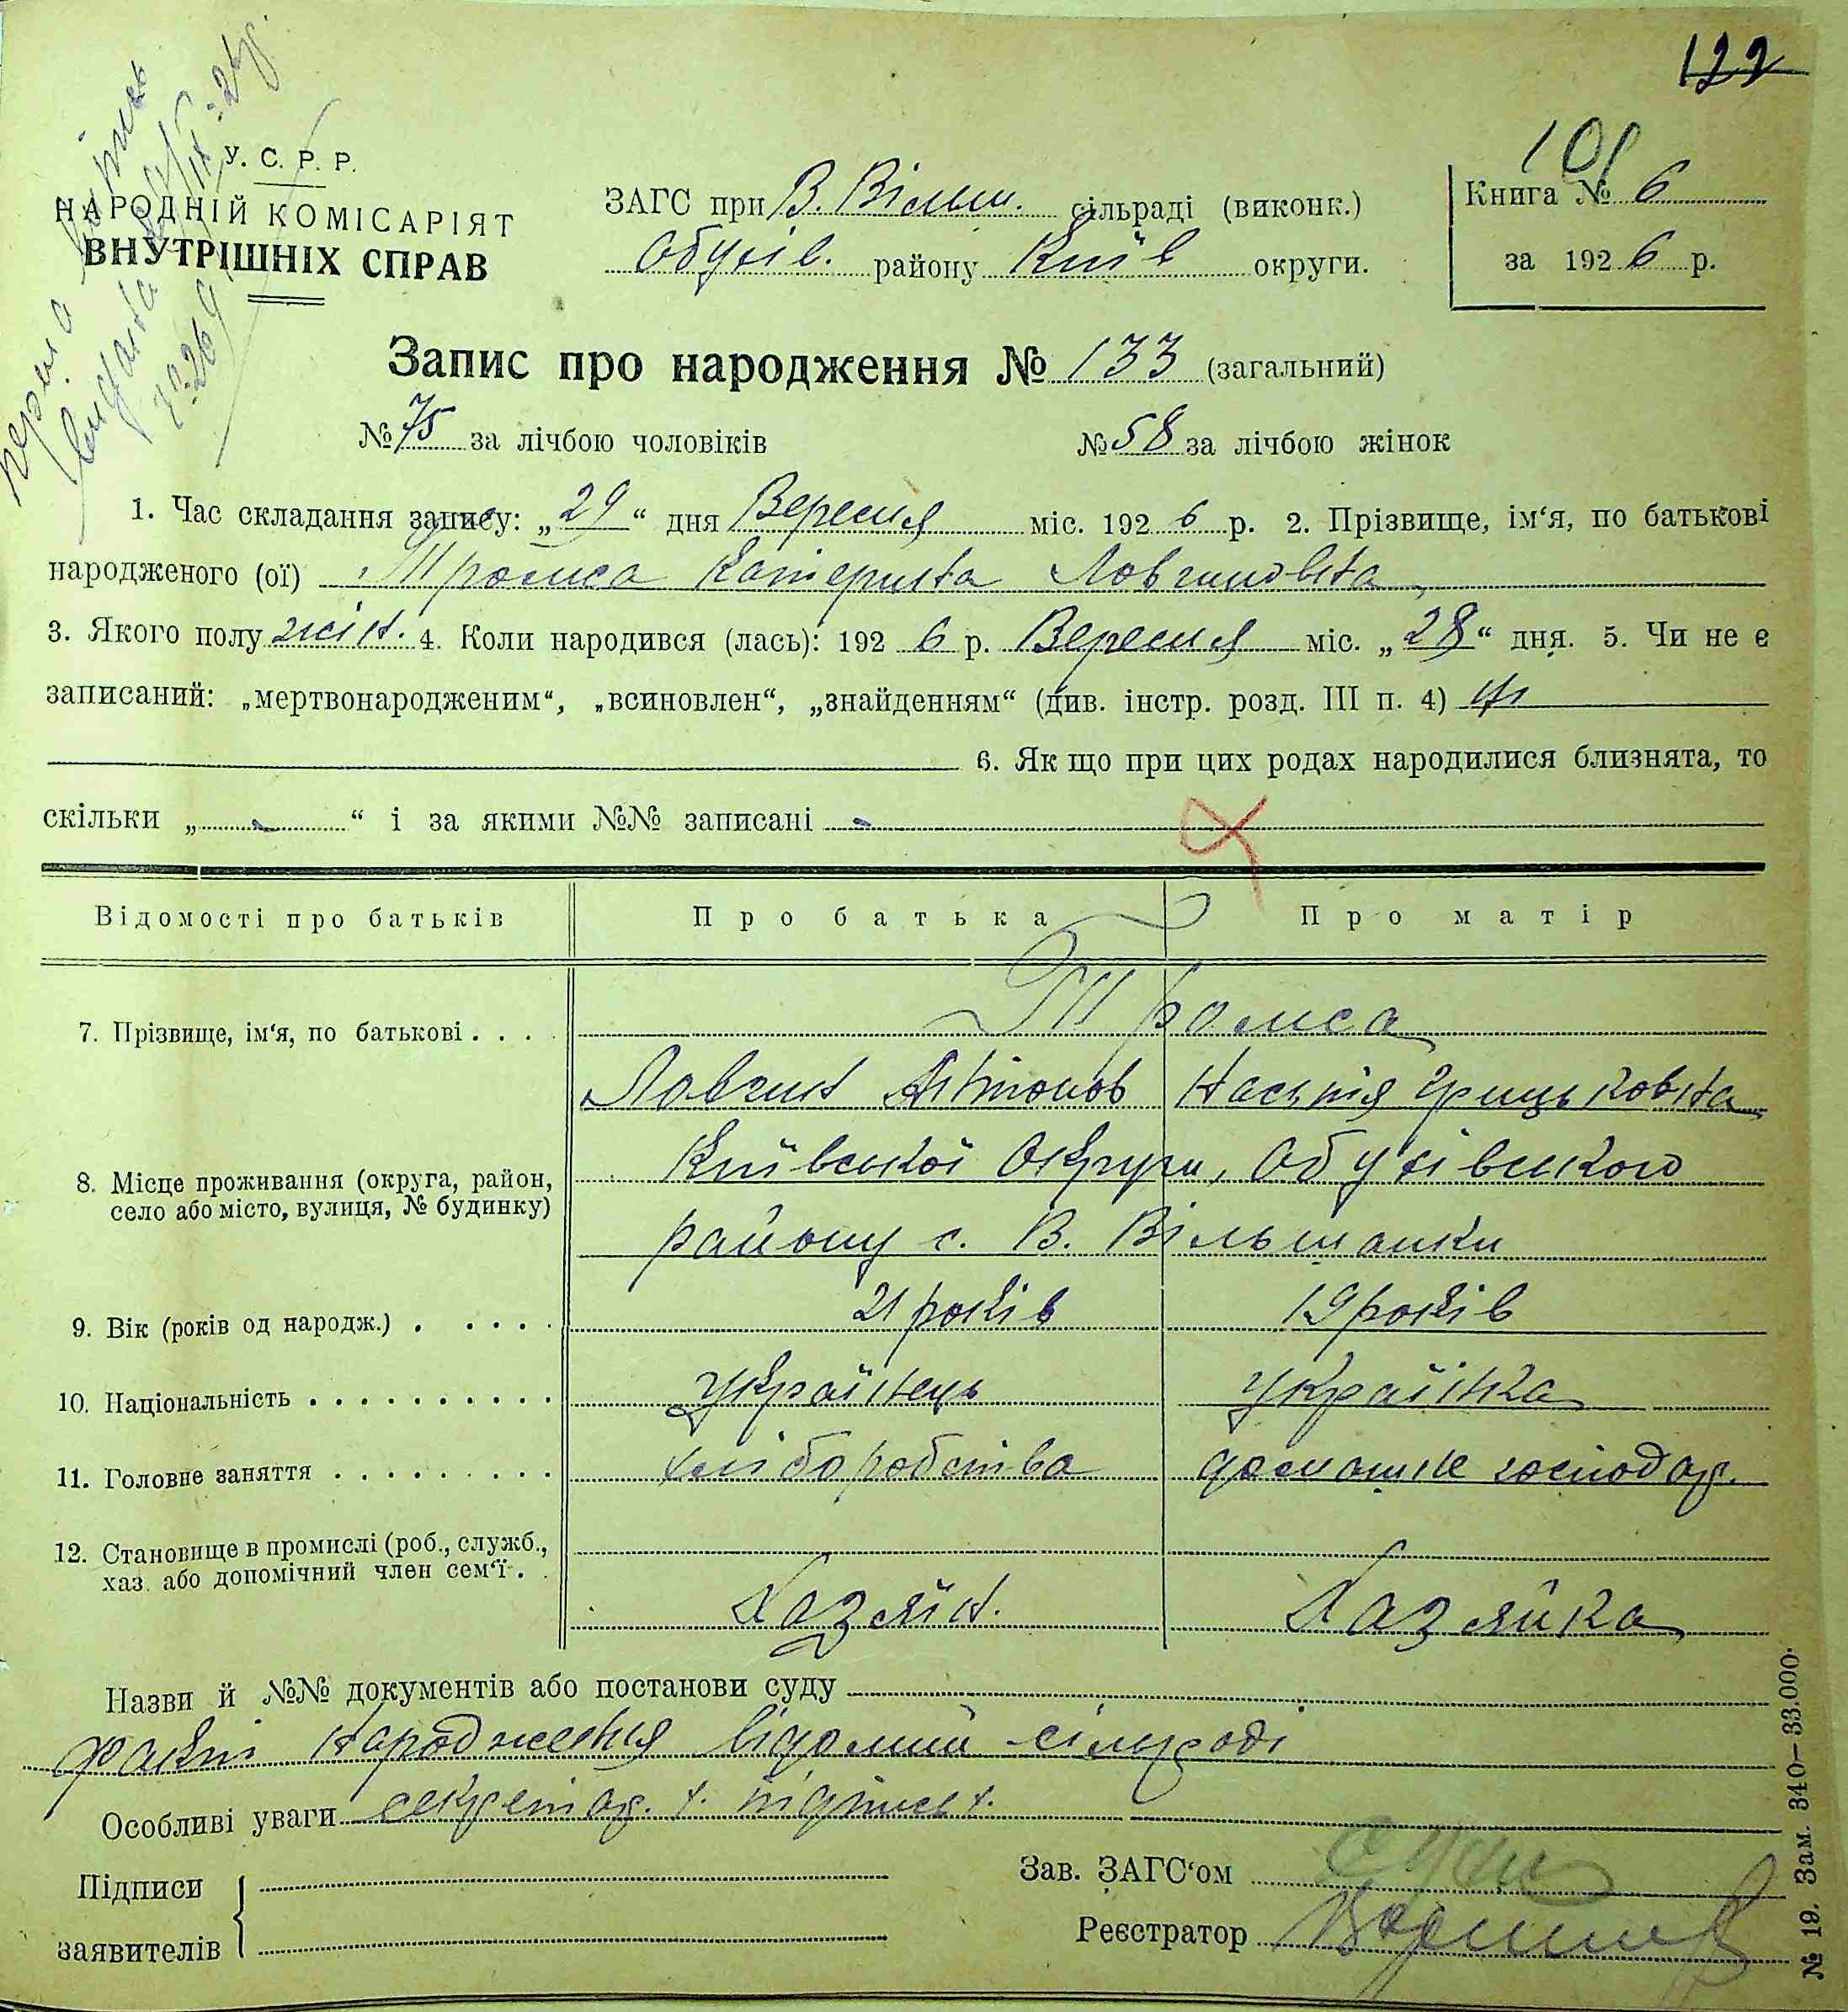 122
101
У. С. Р. Р.
НАРОДНІЙ КОМІСАРІЯТ
ВНУТРІШНІХ СПРАВ
ЗАГС при В. Вільш. сільраді (виконк.)
Обухів. району Київ округи.
Книга № 6
за 1926 р.
Запис про народження № 133 (загальний)
№ 75 за лічбою чоловіків № 58 за лічбою жінок
1. Час складання запису: „29“ дня Вересня міс. 1926 р. 2. Прізвище, ім‘я, по батькові
народженого (ої) Катерина Ловгиновна
3. Якого полу жін. 4. Коли народився (лась): 1926 р. Вересня міс. „28“ дня. 5. Чи не є
записаний: „мертвонародженим“, „всиновлен“, „знайденням“ (див. інстр. розд. III п. 4) ні
6. Як що при цих родах народилися близнята, то
скільки „-“ і за якими №№ записані -
Відомості про батьків Про батька Про матір
7. Прізвище, ім‘я, по батькові . . . .
Ловгин Антонов Настя Грицьковна
8. Місце проживання (округа, район,
село або місто, вулиця, № будинку)
Київської Округи, Обухівського
району с. В. Вільшанки
9. Вік (років од народж.) . . . . . 21 років 19 років
10. Національність . . . . . . . . . . Українець Українка
11. Головне заняття . . . . . . . . . хліборобства домашнє господар.
12. Становище в промислі (роб., служб.,
хаз. або допомічний член сем‘ї . .
Хазяїн. Хазяйка
Назви й №№ документів або постанови суду
факт народження відомий сільраді
Особливі уваги секретар.
Підписи
заявителів
Зав. ЗАГС‘ом
Реєстратор
№ 19. Зам. 340—33.000.